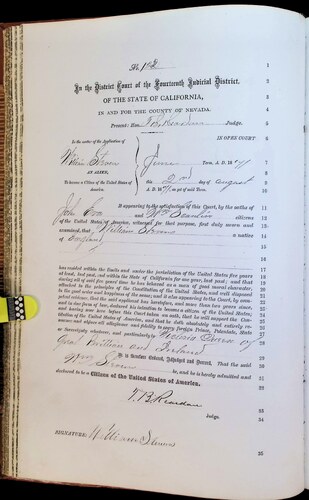 No 142
In the District Court of the Fourteenth Judicial District,
OF THE STATE OF CALIFORNIA,
IN AND FOR THE COUNTY OF NEVADA.
Present: Hon. T. B. Reardan Judge.
In the matter of the Application of
William
AN ALIEN,
To become a Citizen of the United States of America.
IN OPEN COURT
June Term, A. D. 18
this 2nd day of August
A. D. 18 as yet of said Term.
It appearing to the satisfaction of this Court, by the oaths of
John and Wm citizens
of the United States of America, witnesses for that purpose, first duly sworn and
examined, that William a native
of England
has resided within the limits and under the jurisdiction of the United States five years
at least, last past, and within the State of California for one year, last past; and that
during all of said five years time he has behaved as a man of good moral character,
attached to the principles of the Constitution of the United States, and well disposed
to the good order and happiness of the same; and it also appearing to the Court, by
competent evidence, that the said applicant has heretofore, and more than two years since,
and in due form of law, declared his intention to become a citizen of the United States,
and having now here before this Court taken an oath, that he will support the
Constitution of the United States of America, and that he doth absolutely and entirely
renounce and abjure all allegiance and fidelity to every foreign Prince, Potentate, State
or Sovereignty whatever, and particularly to Victoria Queen of
Great Brittian and Ireland
It is therefore Ordered, Adjudged and Decreed, That the said
Wm be, and he is hereby admitted and
declared to be a Citizen of the United States of America.
T. B. Reardan
Judge.
SIGNATURE: William
1
2
3
4
5
6
7
8
9
10